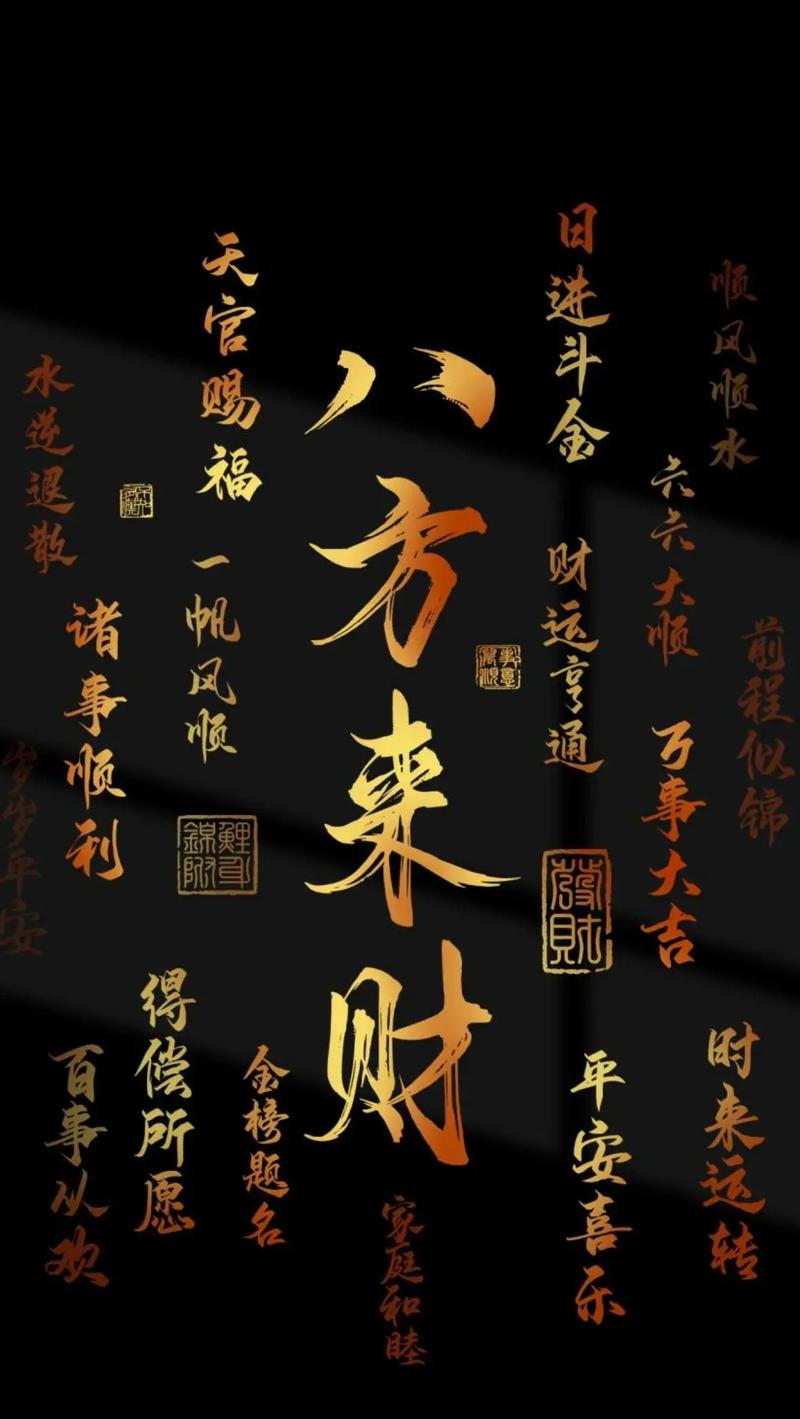 八方来财
天官赐福
日进斗金
顺风顺水
水逆退散
六六大顺
一帆风顺
财运亨通
诸事顺利
前程似锦
万事大吉
岁岁平安
發財
得偿所愿
百事从欢
金榜题名
平安喜乐
时来运转
家庭和睦